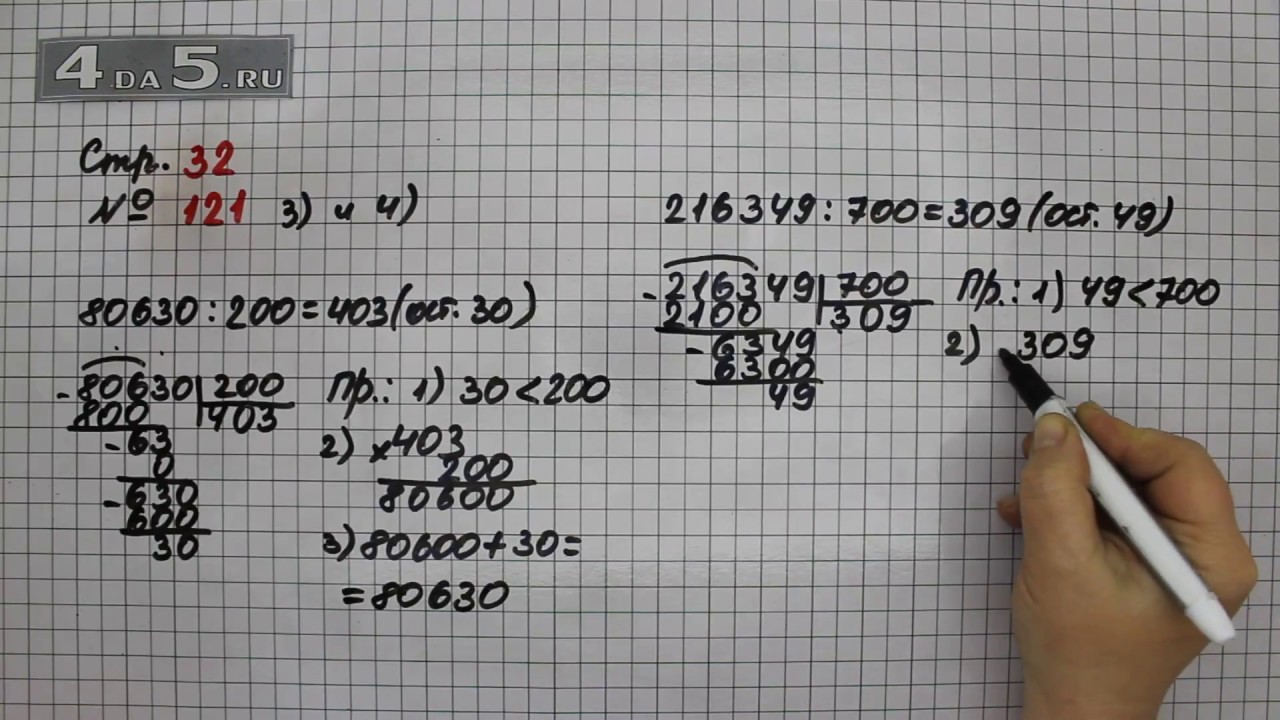 4DA5.RU
Стр. 32
№ 121 3) и 4)
80630 : 200 = 403 (ост. 30)
- 80630 | 200
800 | 403
- 63
0
- 630
600
30
Пр.: 1) 30 < 200
2) × 403
200
80600
3) 80600 + 30 =
= 80630
216349 : 700 = 309 (ост. 49)
- 216349 | 700
2100 | 309
- 6349
6300
49
Пр.: 1) 49 < 700
2) 309